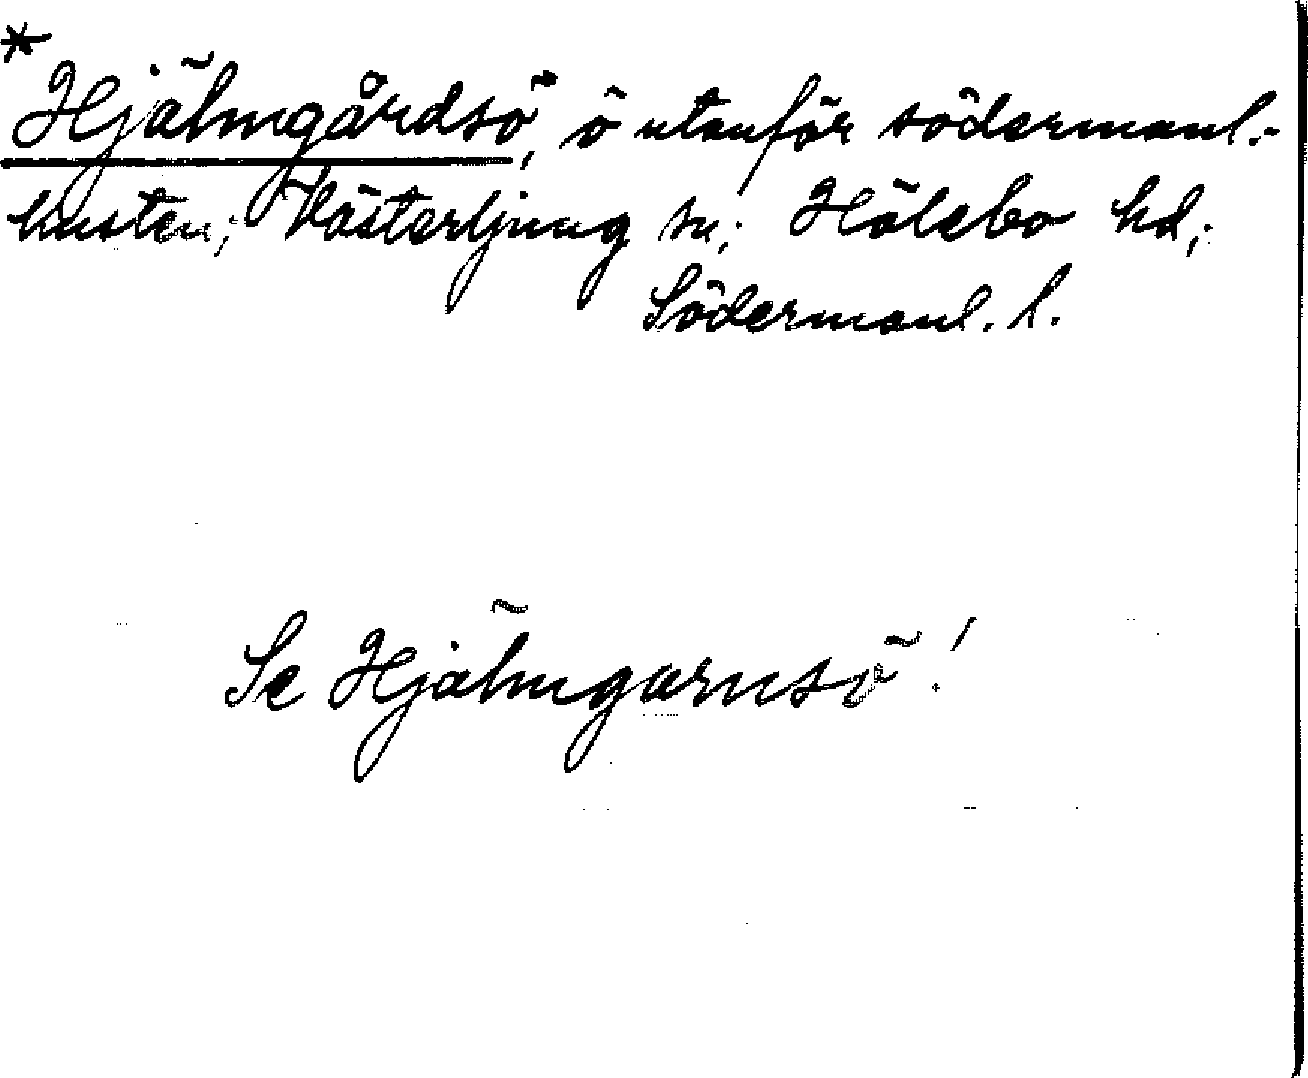 *
Hjälmgårdsö, ö utanför södermanl.-
kusten; Västerljung sn; Hölebo hd,
Södermanl. l.
Se Hjälmgarnsö!